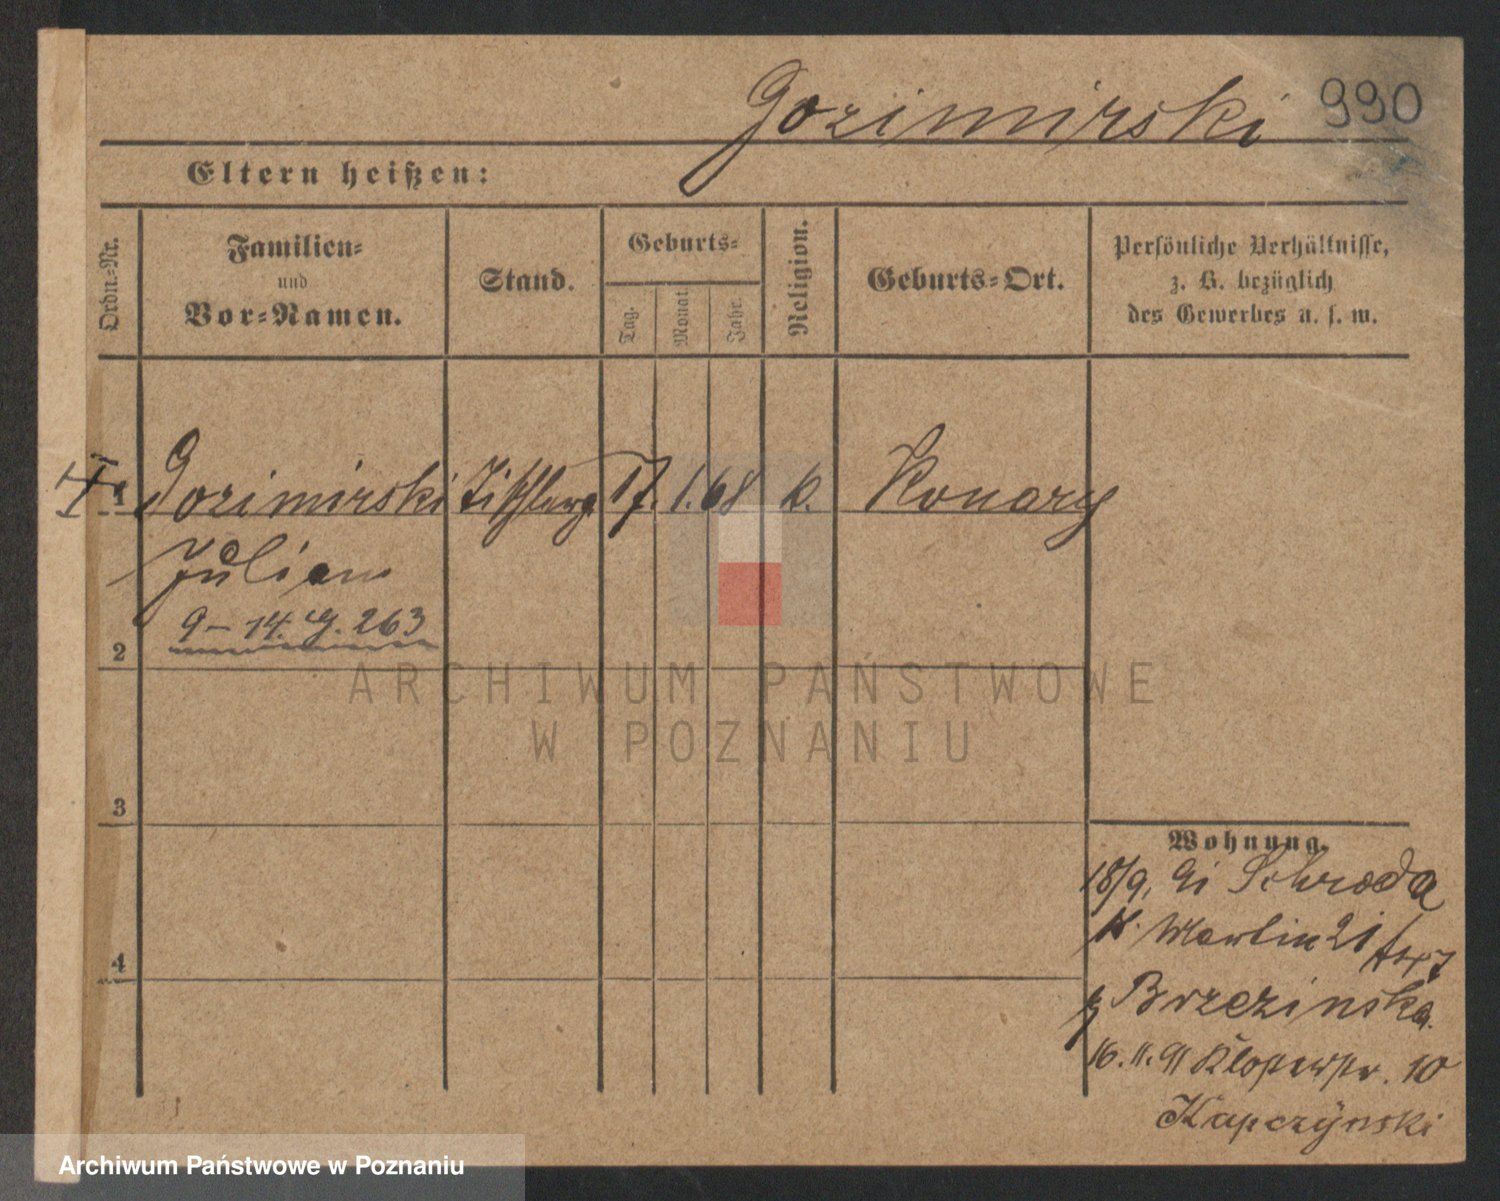 Gozimirski 990
Eltern heißen:
Ordn.-Nr.
Familien-
und
Vor-Namen.
Stand.
Geburts-
Tag.
Monat.
Jahr.
Religion.
Geburts-Ort.
Persönliche Verhältnisse,
z. B. bezüglich
des Gewerbes u. s. w.
1 Gozimirski Tischlerg. 17. 1. 68 k. Konary
Julian
9–14. G. 263
2
3
4
Wohnung.
18/9. 91 Schroda
Martin 21
Brzezinska.
16. 11. 91 10
Kapczynski
ARCHIWUM PAŃSTWOWE
W POZNANIU
Archiwum Państwowe w Poznaniu